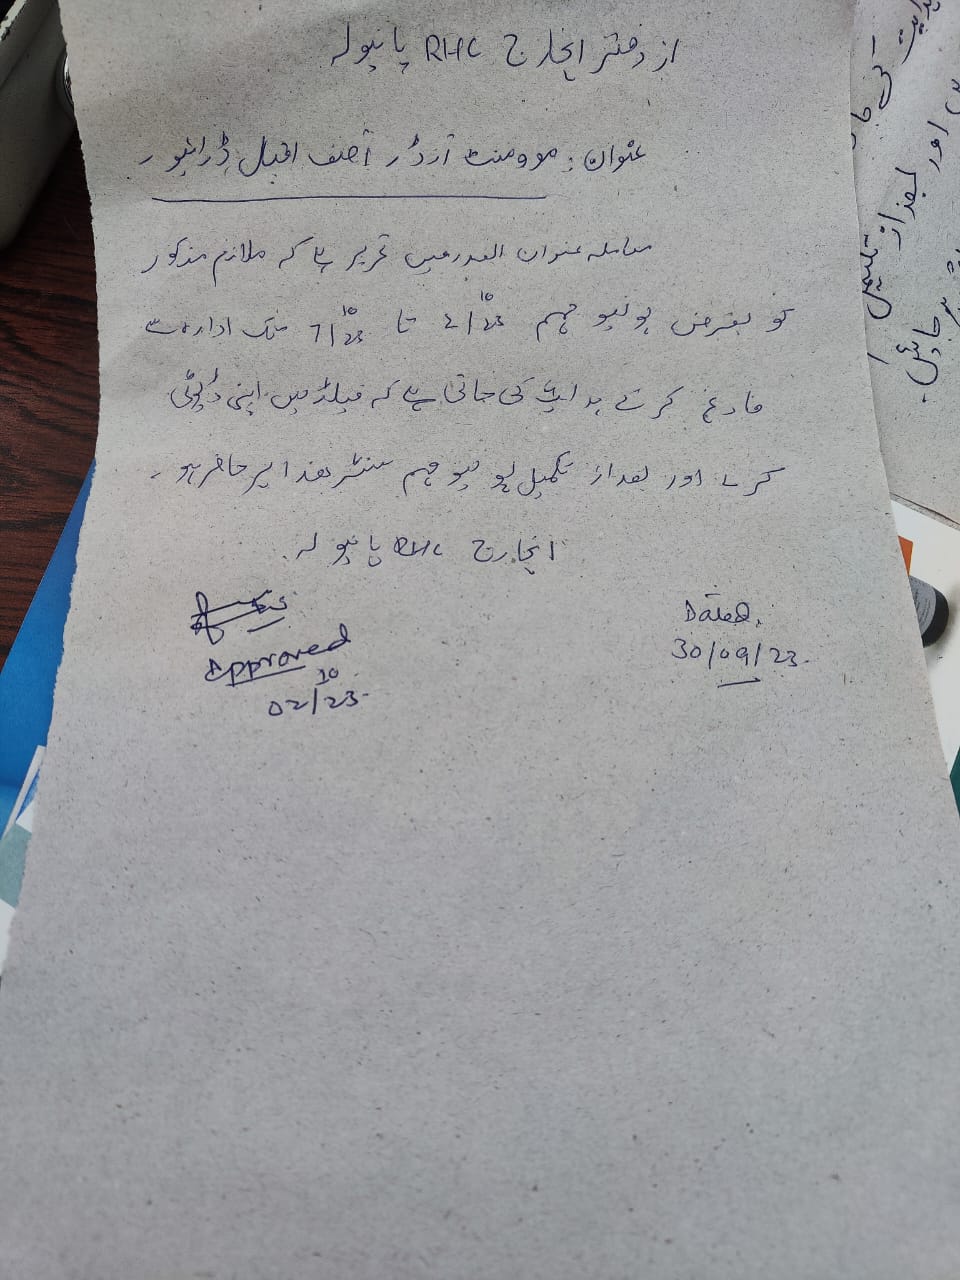 از دفتر انچارج RHC پانپولہ
عنوان: موومنٹ آرڈر آصف اقبال ڈرائیور
معاملہ عنوان الصدر میں تحریر ہے کہ ملازم مذکور
کو بغرض پولیو مہم 2/10/23 تا 7/10/23 تک ادارہ سے
فارغ کرتے ہدایت کی جاتی ہے کہ فیلڈ میں اپنی ڈیوٹی
کرے اور بعد از تکمیل پولیو مہم سنٹر ھذا پر حاضر ہو۔
انچارج RHC پانپولہ
Approved
02/10/23.
Dated.
30/09/23.
ہدایت کی جا
اور بعد از تکمیل